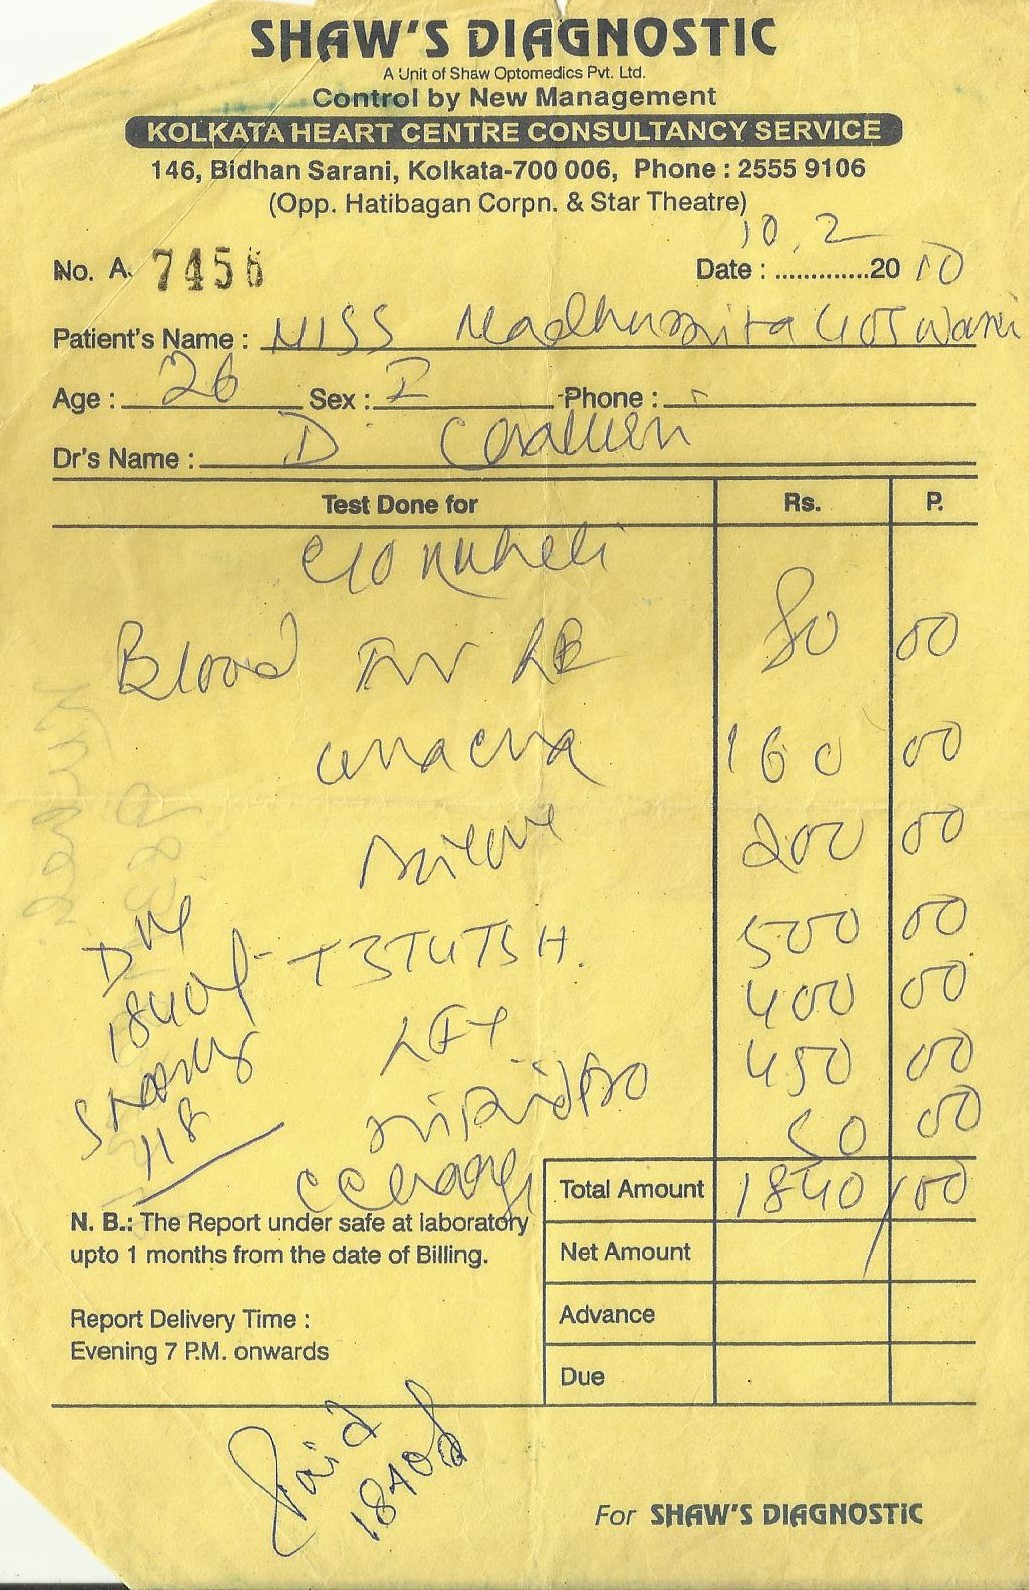 SHAW'S DIAGNOSTIC
A Unit of Shaw Optomedics Pvt. Ltd.
Control by New Management
KOLKATA HEART CENTRE CONSULTANCY SERVICE
146, Bidhan Sarani, Kolkata-700 006, Phone : 2555 9106
(Opp. Hatibagan Corpn. & Star Theatre)
No. A. 7456 Date : 10.2 2010
Patient's Name : MISS Madhumita Goswami
Age : 26 Sex : F Phone :
Dr's Name : D
Test Done for Rs. P.
Blood 80 00
160 00
200 00
T3T4TSH. 500 00
LFT 400 00
450 00
50 00
Due
1840/-
118
Total Amount 1840/00
Net Amount
Advance
Due
N. B.: The Report under safe at laboratory
upto 1 months from the date of Billing.
Report Delivery Time :
Evening 7 P.M. onwards
Paid
1840/
For SHAW'S DIAGNOSTIC